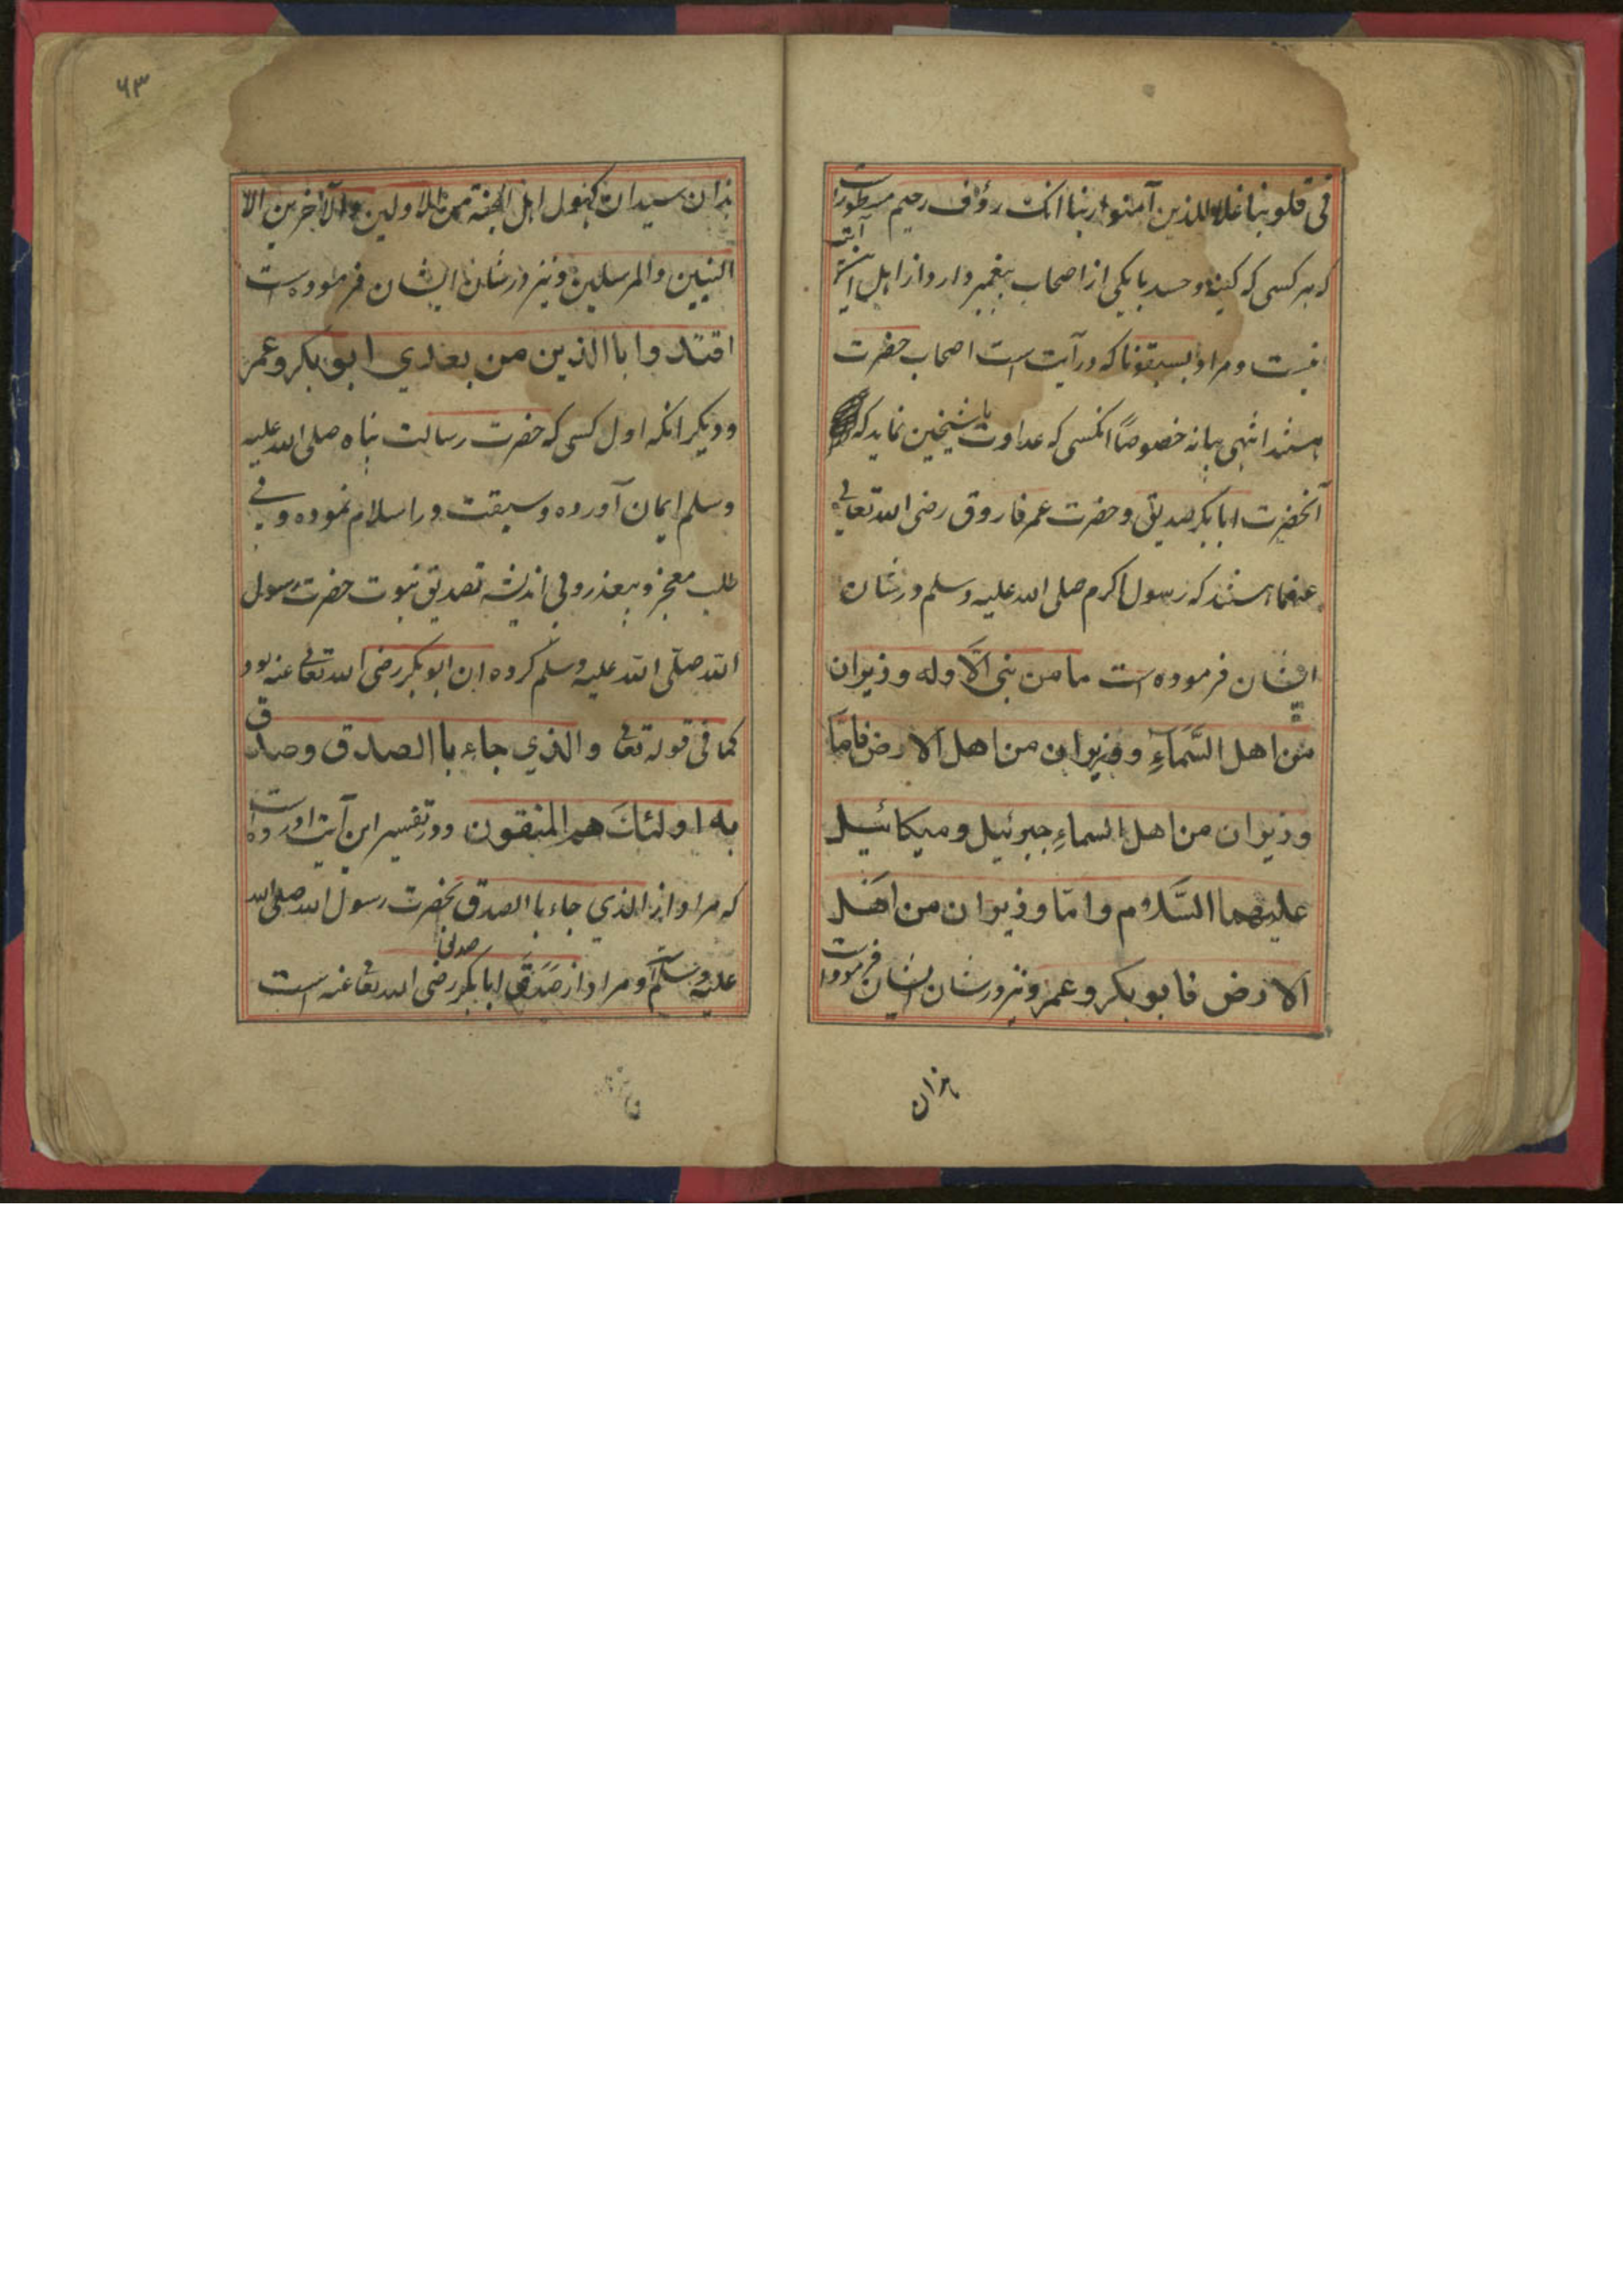 فی قلوبنا غلا للذین آمنوا ربنا انک رؤف رحیم مسطورست
که هر کسی که کینه و حسد با یکی از اصحاب پیغمبر دارد از اهل این آیت
نیست و مراد بسبقونا که در آیت است اصحاب حضرت
هستند انتهی بیانه خصوصاً انکسی که عداوت با شیخین نماید که
آنحضرت ابابکر صدیق و حضرت عمر فاروق رضی الله تعالی
عنهما هستند که رسول اکرم صلی الله علیه وسلم در شان
ایشان فرموده است ما من نبی الّا وله وزیران
من اهل السَّمَآءِ و وزیران من اهل الارض فامّا
وزیران من اهل السماءِ جبرئیل و میکائیل
علیهما السَّلام و امّا وزیران من اهَل
الارض فابو بکر و عمر و نیز در شان ایشان فرمودست
هذان
۶۳
هذان سیدان کهول اهل الجنة من الاولین والآخرین الا
النبیین والمرسلین و نیز در شان ایشان فرموده است
اقتدوا باالذین من بعدي ابو بکر و عمر
و دیکر انکه اول کسی که حضرت رسالت پناه صلی الله علیه
وسلم ایمان آورده و سبقت در اسلام نموده و بی
طلب معجزه و بیعذر و بی اندیشه تصدیق نبوت حضرت رسول
الله صلّی الله علیه وسلم کرده ان ابو بکر رضی الله تعالی عنه بود
کما فی قوله تعالی والذي جاء باالصدق وصدق
به اولئكَ هم المتقون و در تفسیر این آیت اورده است
که مراد از الذي جاء باالصدق حضرت رسول الله صلی الله
علیه وسلم و مراد از صَدَّقَ ابابکر رضی الله تعالی عنه است